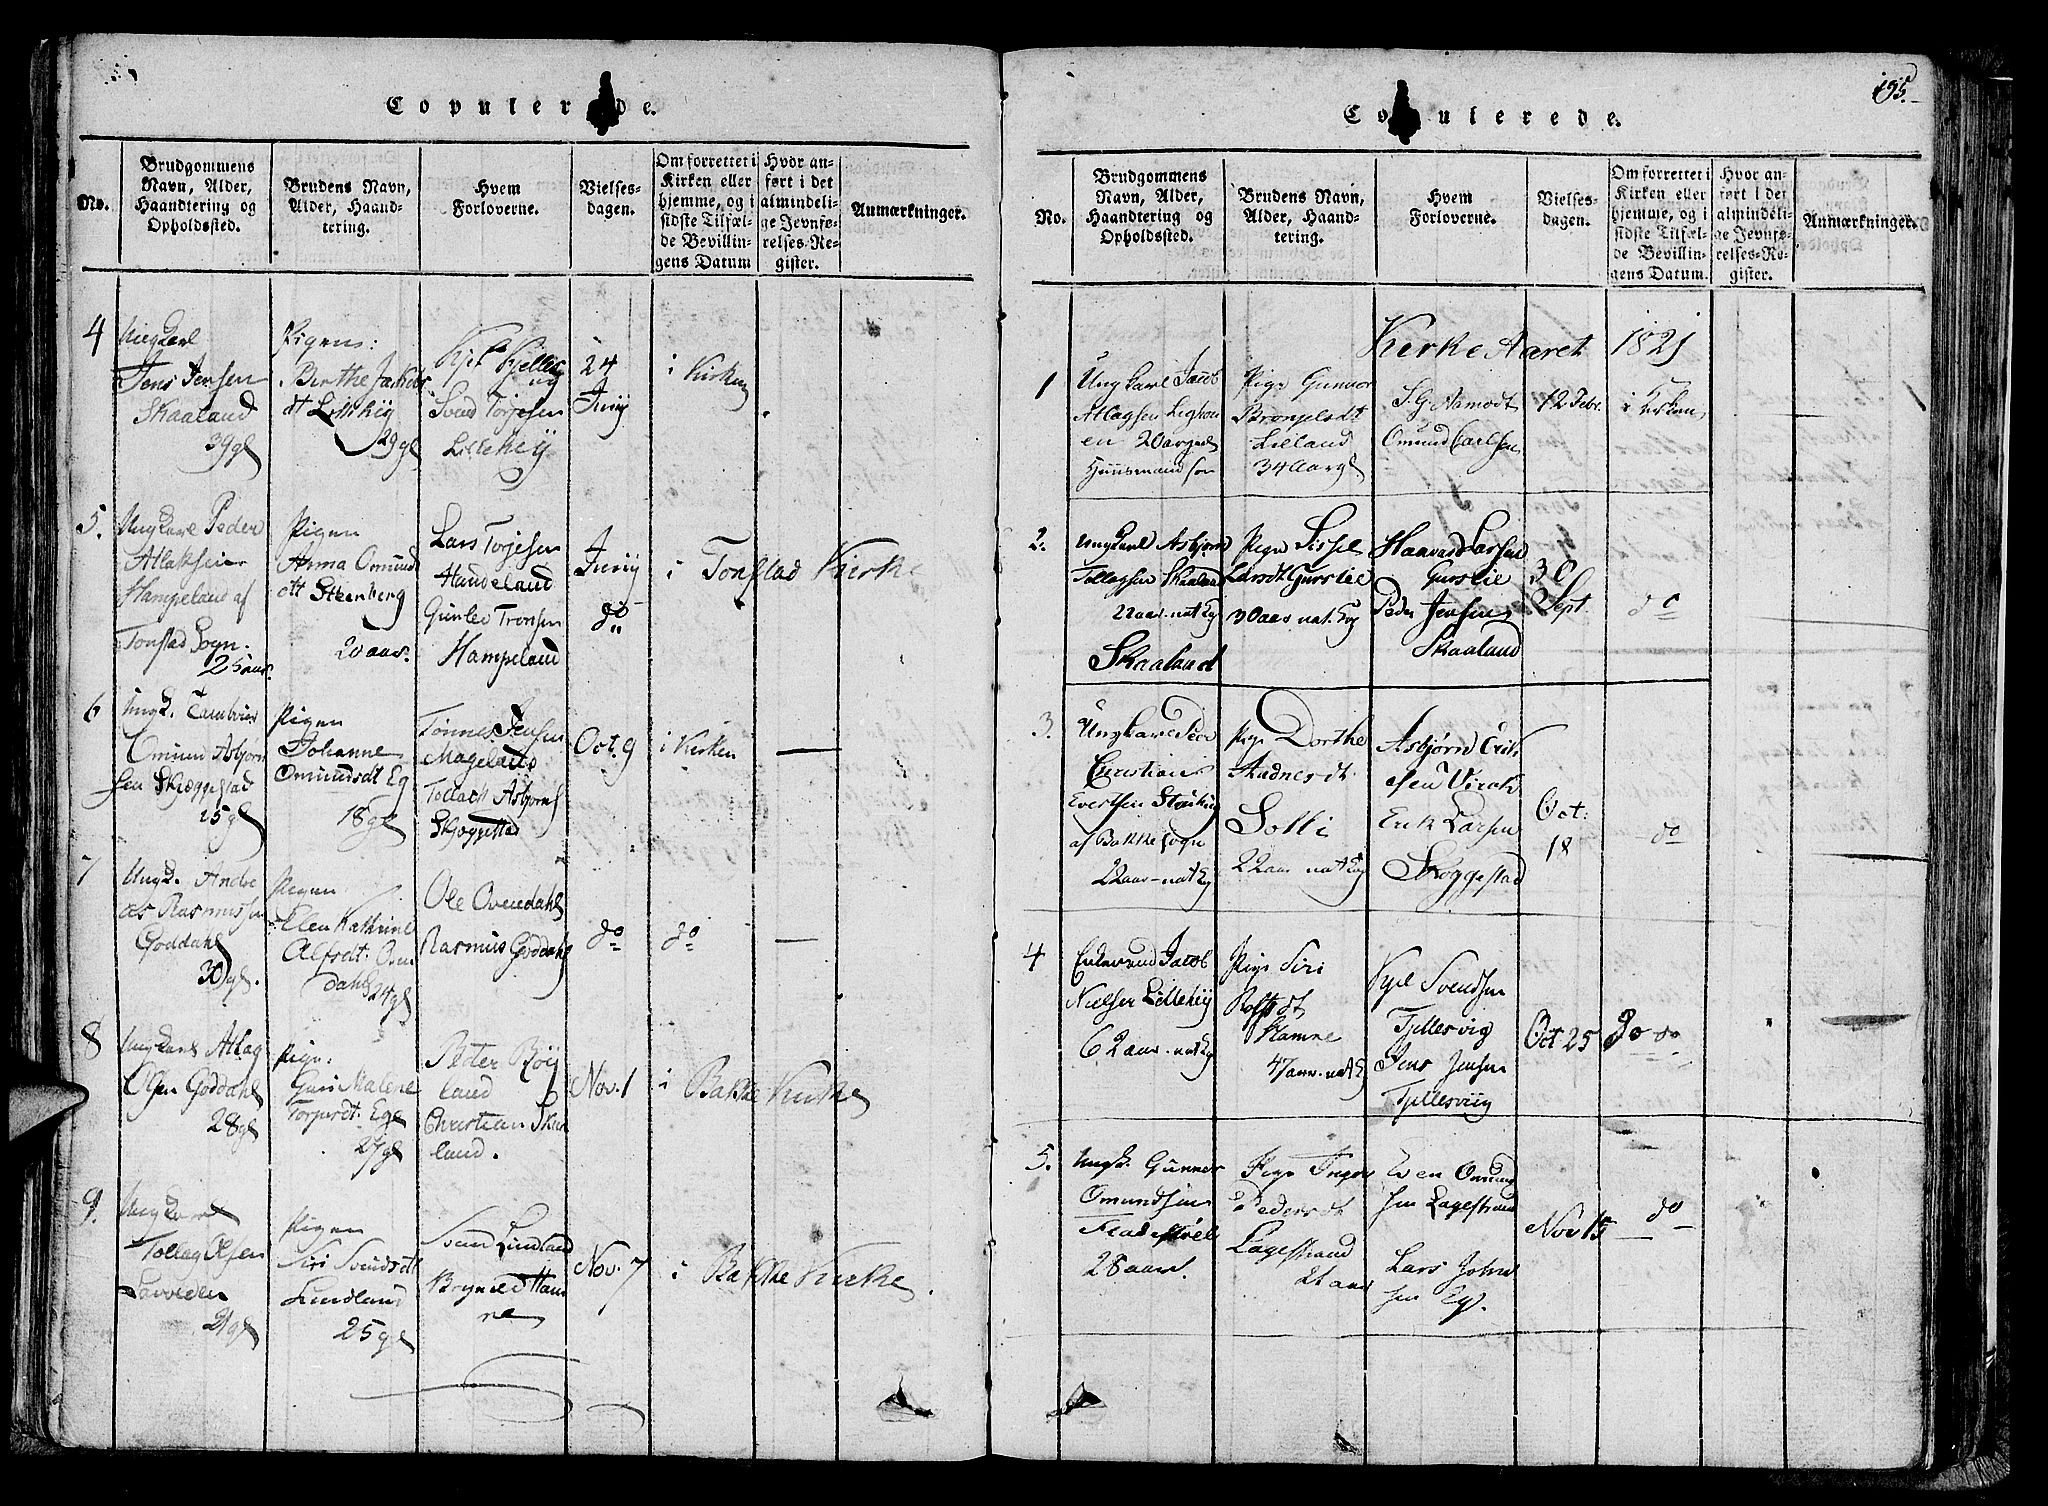 Copulerede.
No.
Brudgommens Navn, Alder, Haandtering og Opholdssted.
Brudens Navn, Alder, Haandtering.
Hvem Forloverne.
Vielses-dagen.
Om forrettet i Kirken eller hjemme, og i sidste Tilfælde Bevillingens Datum
Hvor anført i det almindelige Jevnførelses-Register.
Anmærkninger.
4
Ungkarl
Jens Jensen
Skaaland
39 gl
Pigen:
Berthe Jacobs
dt Lillehøÿ
29 gl
Svend Torjesen
Lillehøÿ
24
Junÿ
i Kirken
5.
Ungkarl Peder
Atlaksen
Hampeland af
Tonstad Sogn.
25 aar.
Pigen
Anna Omund
dt Steenberg
20 aar.
Lars Torjesen
Handeland
Gunle Tronsen
Hampeland
Junÿ
do
i Tonstad Kirke
6
Ungk.
Omund Asbjørn
sen Skjeggestad
25 gl
Pigen
Johanne
Omundsdt Eg
18 gl
Tønnes Jensen
Mageland
Tollach Asbjørns
Skjeggestad
Oct. 9
i Kirken
7
Ungk. Andre
as Rasmussen
Goddahl
30 gl.
Pigen
Elen Kathrine
Alfsdt. Oven
dahl 24 gl
Ole Ovendahl
Rasmus Goddahl
do
do
8
Ungkarl Atlag
Olsen Goddahl
28 gl
Pige:
Guri Malene
Torgersdt. Ege
27 gl
Peder Røÿ
land
Christian Skaa
land.
Nov. 1
i Bakke Kirke
9.
Ungkarl
Tollag Olsen
Pigen
Siri Svendsdt
Lundland
25 gl
Sven Lundland
Bryneld Ham
re
Nov. 7
i Bakke Kirke.
195.
Copulerede.
No.
Brudgommens Navn, Alder, Haandtering og Opholdssted.
Brudens Navn, Alder, Haandtering.
Hvem Forloverne.
Vielses-dagen.
Om forrettet i Kirken eller hjemme, og i sidste Tilfælde Bevillingens Datum.
Hvor anført i det almindelige Jevnførelses-Register.
Anmærkninger.
Kirke Aaret 1821
1
Ungkarl Jacob
Atlagsen
en 20 aar gl
Huusmandssøn
Pige Gunnor
Lilland
34 Aar gl
S. G. Aamodt
Omund Carlsen
12 Febr.
i Kirken
2.
Ungkarl Asbjørn
Tollagsen Skaaland
22 aar. nat. Eg
Skaaland
Pige Sissel
Larsdt Gurslie
30 aar nat. Eg
Haavard Larsen
Gurslie
Peder Jensen
Skaaland
30
Sept.
do
3.
Ungkarl Peder
Christian
Evertsen
af Bakke Sogn
22 aar. nat Eg
Pige Dorthe
Aadnesdt.
Solli
22 aar nat Eg
Asbjørn Erik
sen Virak
Erik Larsen
Skeggestad
Oct:
18
do
4
Enkemand Jacob
Nielsen Lillehøÿ
62 aar. nat Eg
Pige Siri
Hamre
47 aar. nat Eg
Kyel Svendsen
Fjellesvig
Jens Jensen
Fjellesviig
Oct 25
do do
5.
Ungk. Gunner
Omundsen
28 aar.
Pige Inger
Pedersdt
Lagestrand
21 aar
Even Omund
sen Lagestrand
Lars John
sen Eg.
Nov 15
do